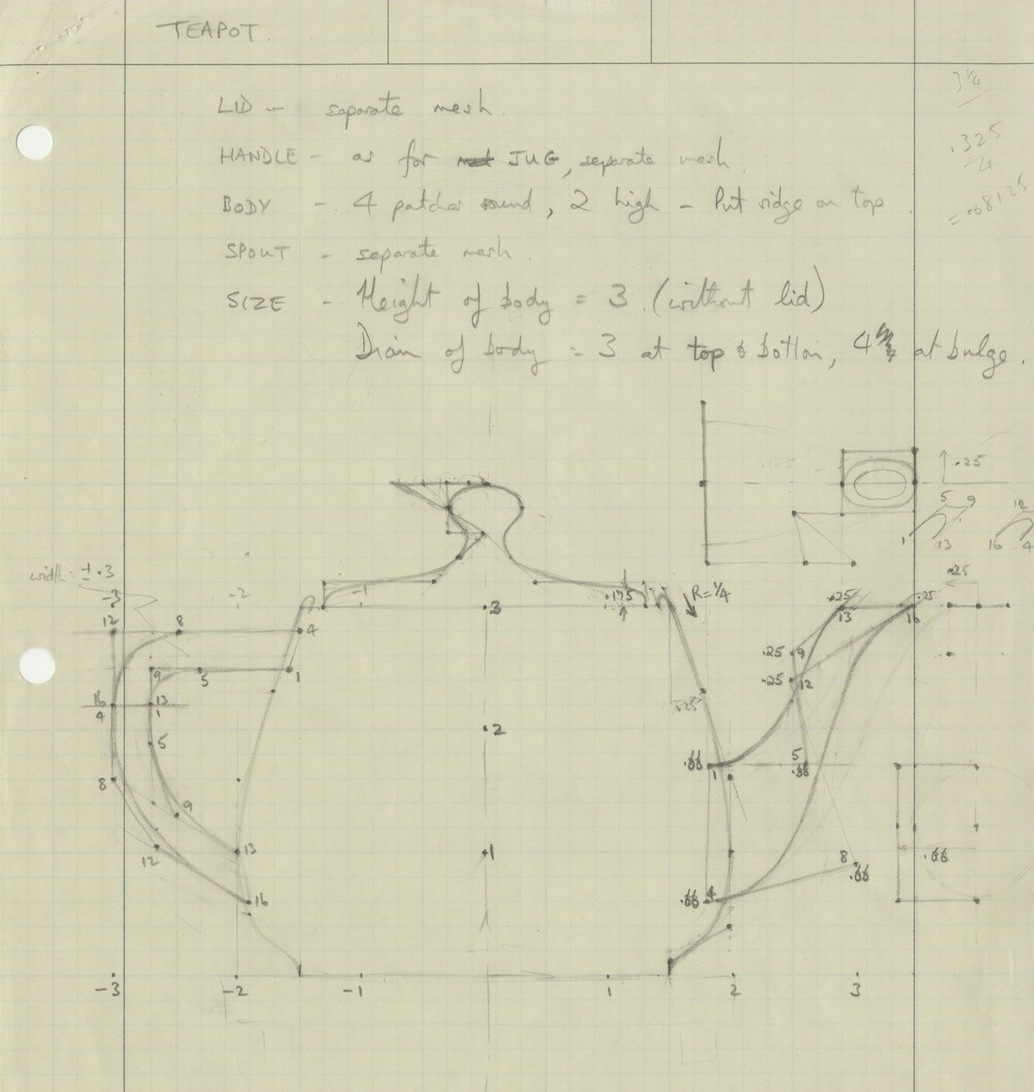 TEAPOT.
3 1/4
LID - separate mesh.
.325
4
HANDLE - as for JUG, separate mesh.
= .08125
BODY - 4 patches round, 2 high - Put ridge on top
SPOUT - separate mesh.
SIZE - Height of body = 3 (without lid)
Diam of body = 3 at top & bottom, 4 at bulge.
.25
5 9
12
1 13
16 4
width: ±.3
-3
-2
-1
.175
R=1/4
.25
.25
.25
12
8
4
3
13
16
9
5
1
.25 9
.25
12
16
4
13
1
.25
2
5
.66
1
5
.66
8
9
12
13
1
8
.66
.66
16
.66 4
-3
-2
-1
1
2
3